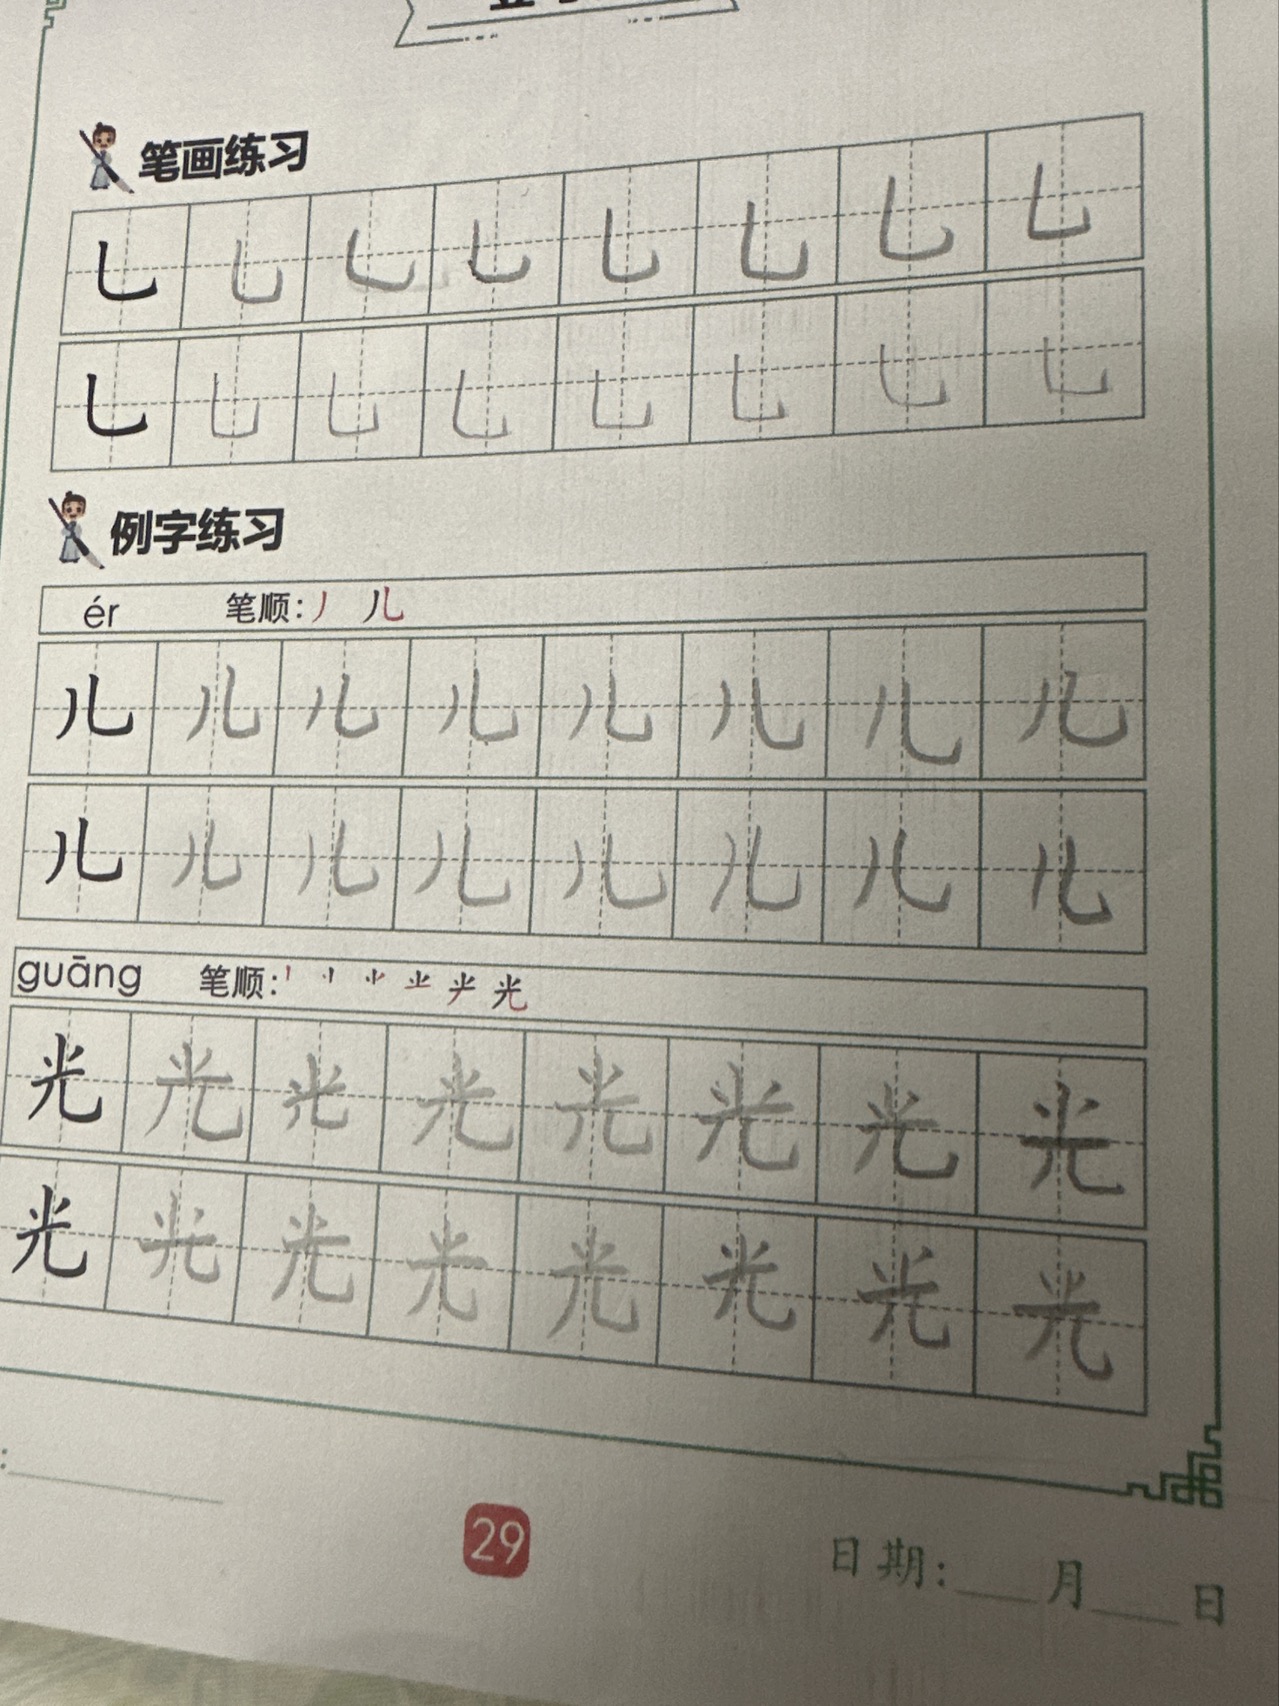 笔画练习
㇄ ㇄ ㇄ ㇄ ㇄ ㇄ ㇄ ㇄
㇄ ㇄ ㇄ ㇄ ㇄ ㇄ ㇄ ㇄
例字练习
ér 笔顺：丿 儿
儿 儿 儿 儿 儿 儿 儿 儿
儿 儿 儿 儿 儿 儿 儿 儿
guāng 笔顺：光
光 光 光 光 光 光 光 光
光 光 光 光 光 光 光 光
29
日期：___月___日